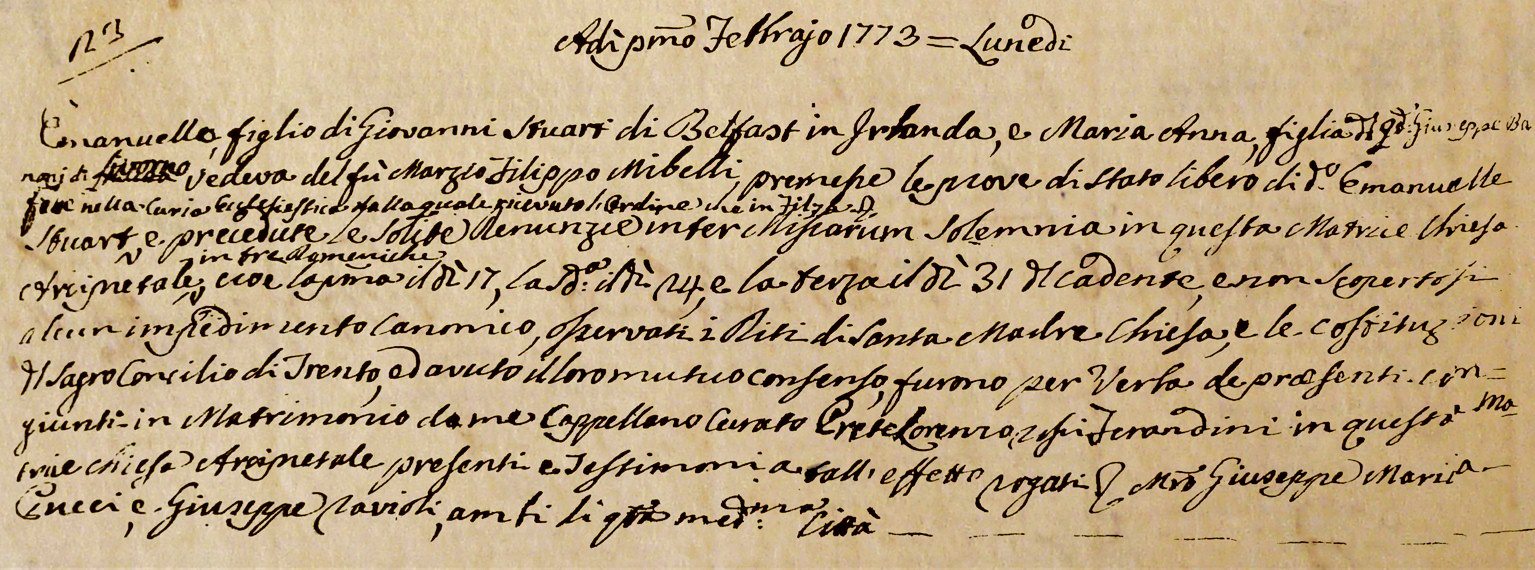 N 3
Adì pmo Febbrajo 1773 = Lunedì
Emanuelle, figlio di Giovanni Stuart di Belfast in Irlanda, e Maria Anna, figlia dl qd: Giuseppe Ba
di Livorno vedova del fù Marzio Filippo Mibelli, premesse le prove di stato libero di do Emanuelle
fatte nella Curia Ecclesiastica dalla quale ricevuto l'Ordine che in Filza
Stuart, e precedute le solite denunzie inter Missarum Solemnia in questa Matrice Chiesa
in tre Domeniche
Arcipretale, cioe la pma il dì 17, la 2da: il dì 24, e la terza il dì 31 dl cadente, e non scopertosi
alcun impedimento Canonico, osservati i Riti di Santa Madre Chiesa, e le costituzioni
dl Sagro Concilio di Trento, ed avuto il loro mutuo consenso, furono per Verba de præsenti con=
giunti in Matrimonio da me Cappellano Curato Prete Lorenzo Ferandini in questa Ma-
trice chiesa Arcipretale presenti e Testimoni a tall'effetto rogati Mro Giuseppe Maria
Cucci, e Giuseppe Ravioli, ambi di qta medma: Città